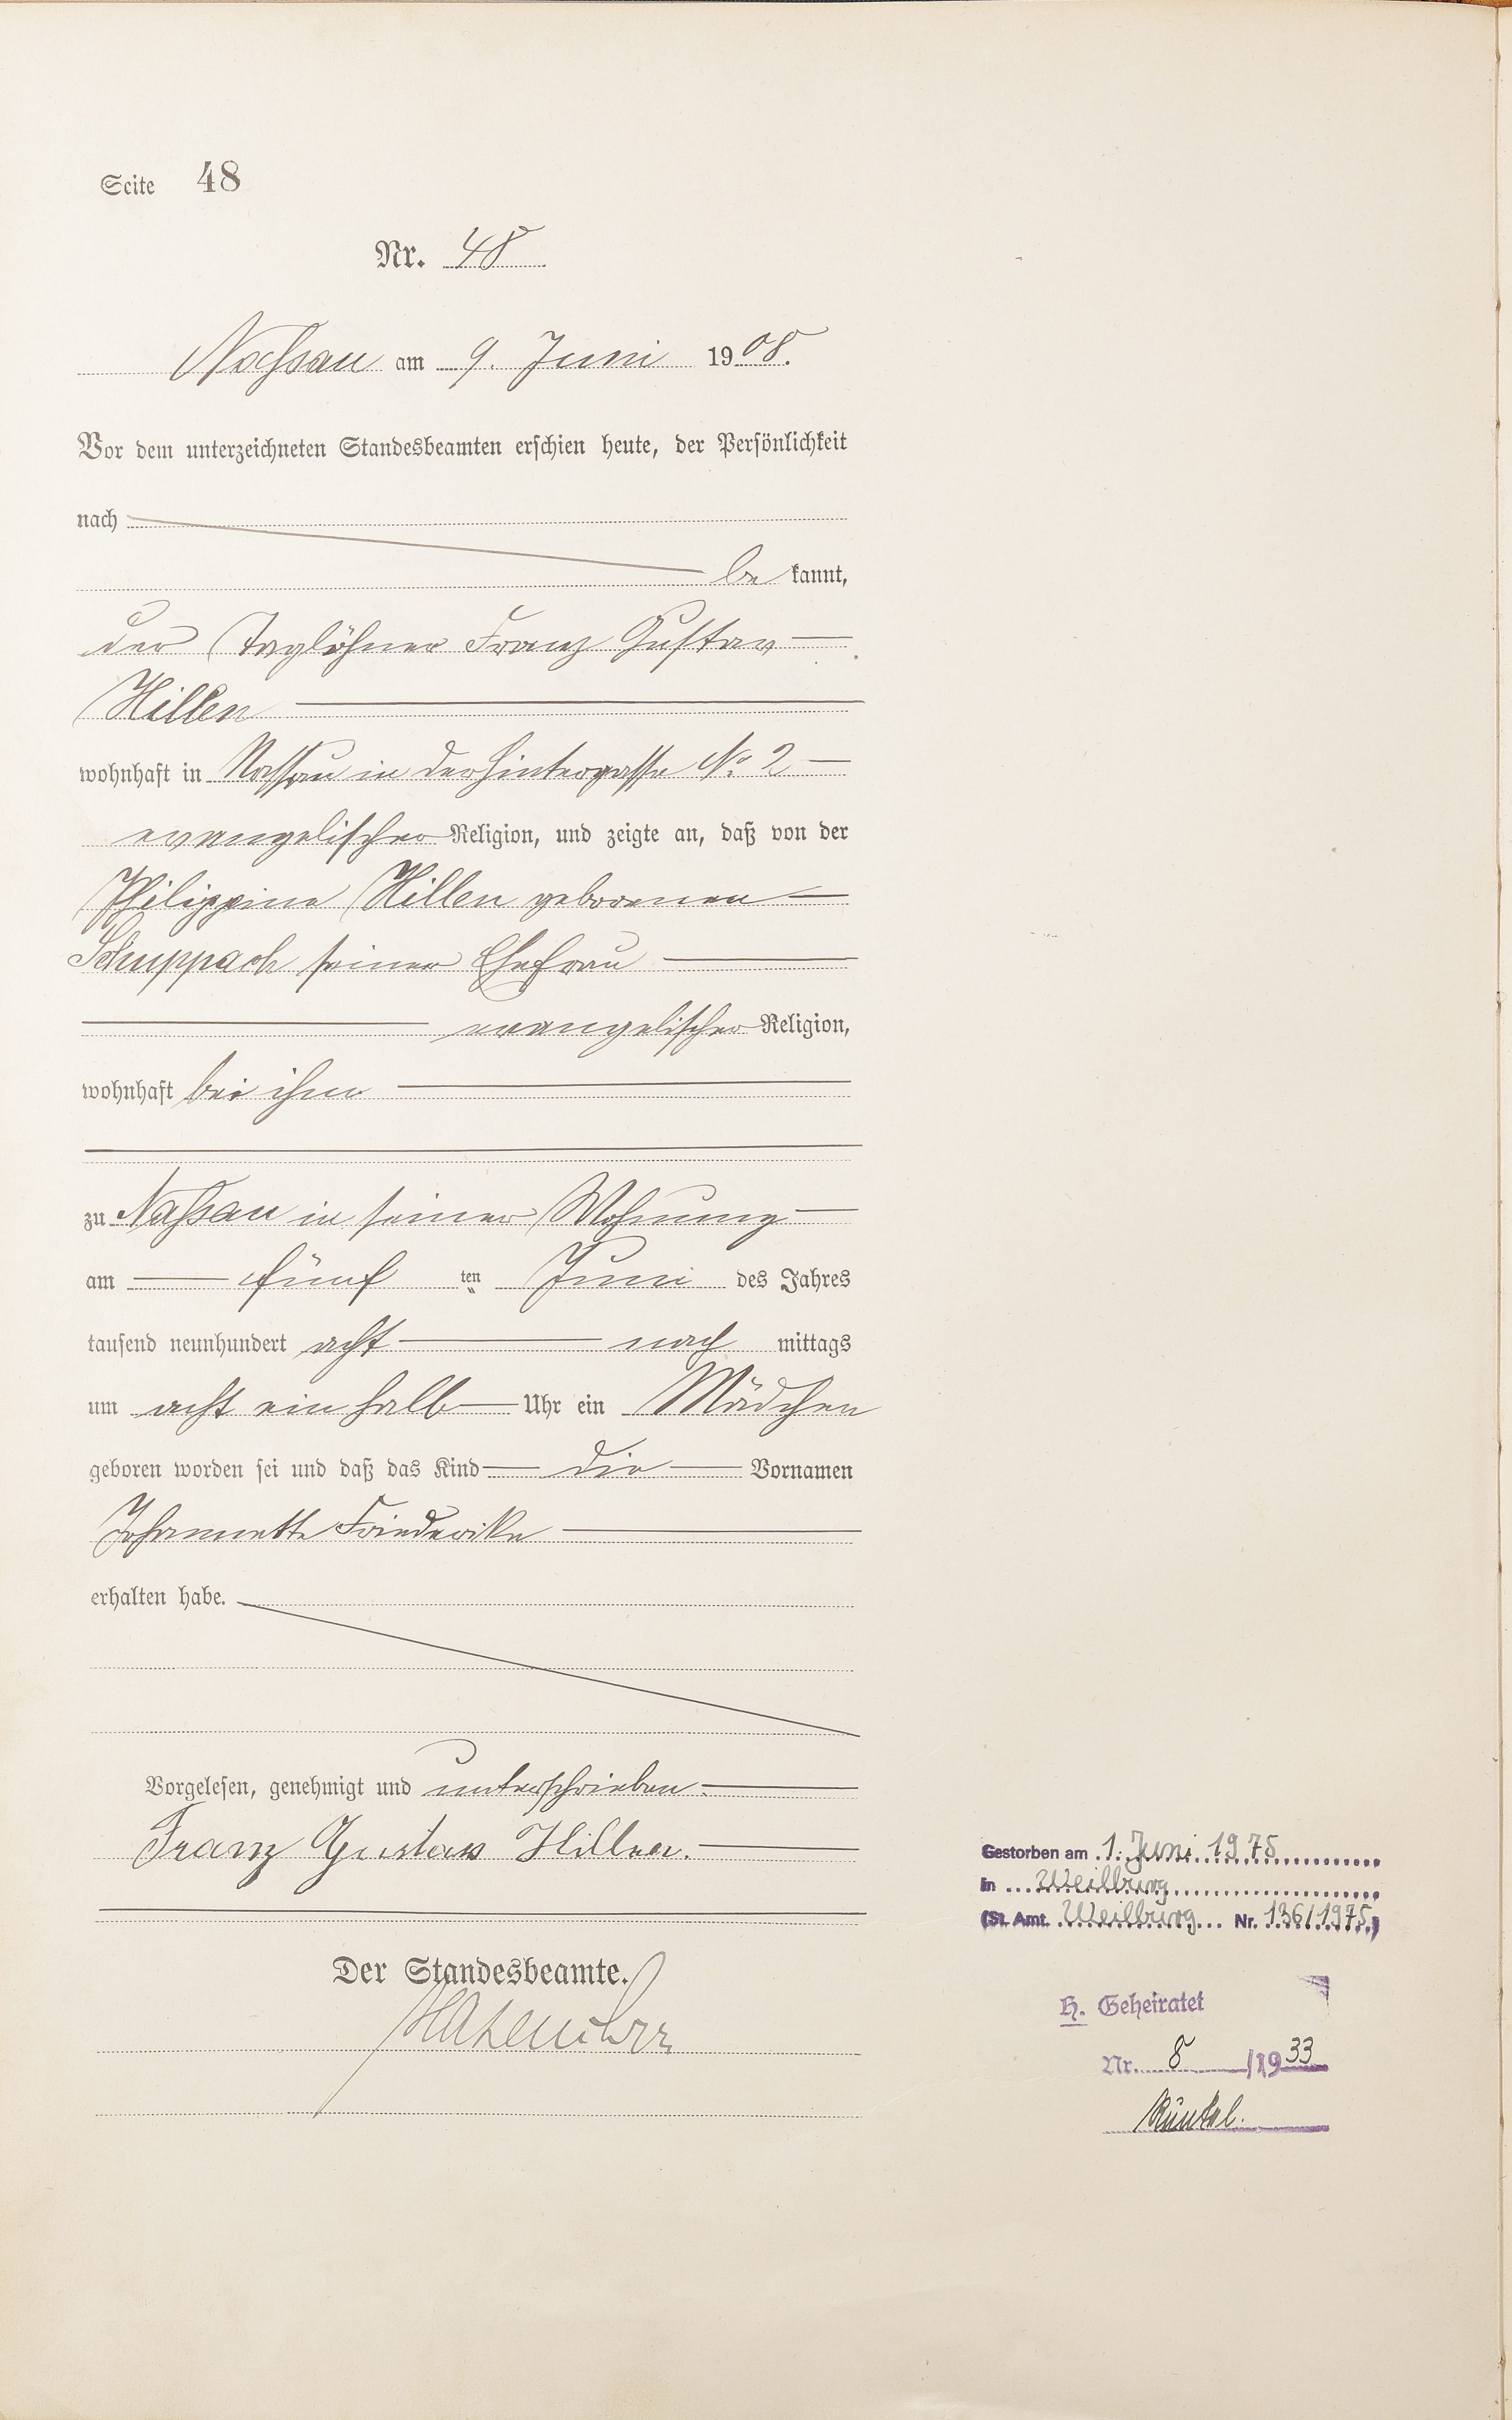 Seite 48
Nr. 48
Nassau am 9. Juni 1908.
Vor dem unterzeichneten Standesbeamten erschien heute, der Persönlichkeit
nach
be kannt,
der Taglöhner Franz Gustav
Hillen
wohnhaft in Nassau in der Hintergasse No 2
evangelischer Religion, und zeigte an, daß von der
Philippine Hillen geborenen
Schuppach seiner Ehefrau
evangelischer Religion,
wohnhaft bei ihm
zu Nassau in seiner Wohnung
am fünf ten Juni des Jahres
tausend neunhundert acht nach mittags
um acht ein halb Uhr ein Mädchen
geboren worden sei und daß das Kind die Vornamen
Johannette Friederike
erhalten habe.
Vorgelesen, genehmigt und unterschrieben.
Franz Gustav Hillen.
Der Standesbeamte.
Gestorben am 1. Juni 1975
in Weilburg
(St. Amt Weilburg Nr. 136/1975)
H. Geheiratet
Nr. 8 /1933